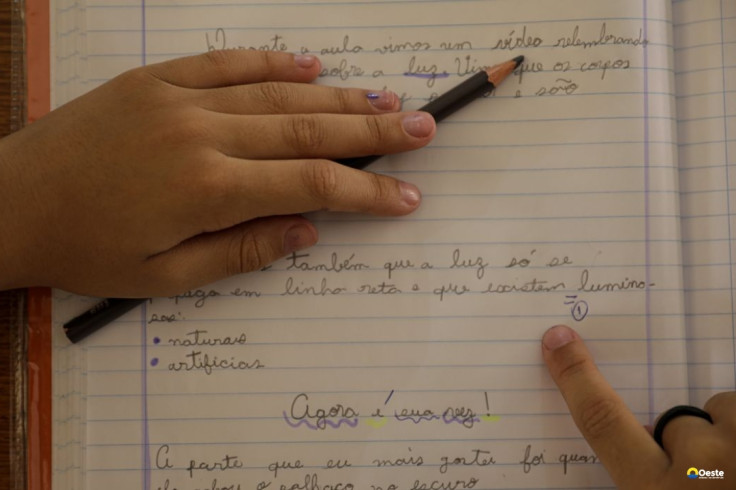 Durante a aula vimos um vídeo relembrando
sobre a luz. que os corpos
e são
também que a luz só se
em linha reta e que existem lumino-
sas:
1
• naturais
• artificias
Agora é sua vez!
A parte que eu mais gostei foi quan
o palhaço no escuro
Oeste